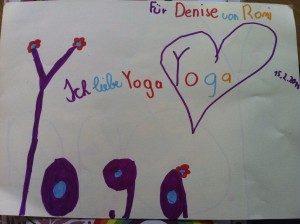 Für Denise von Romi
Ich liebe Yoga
Yoga
Yoga